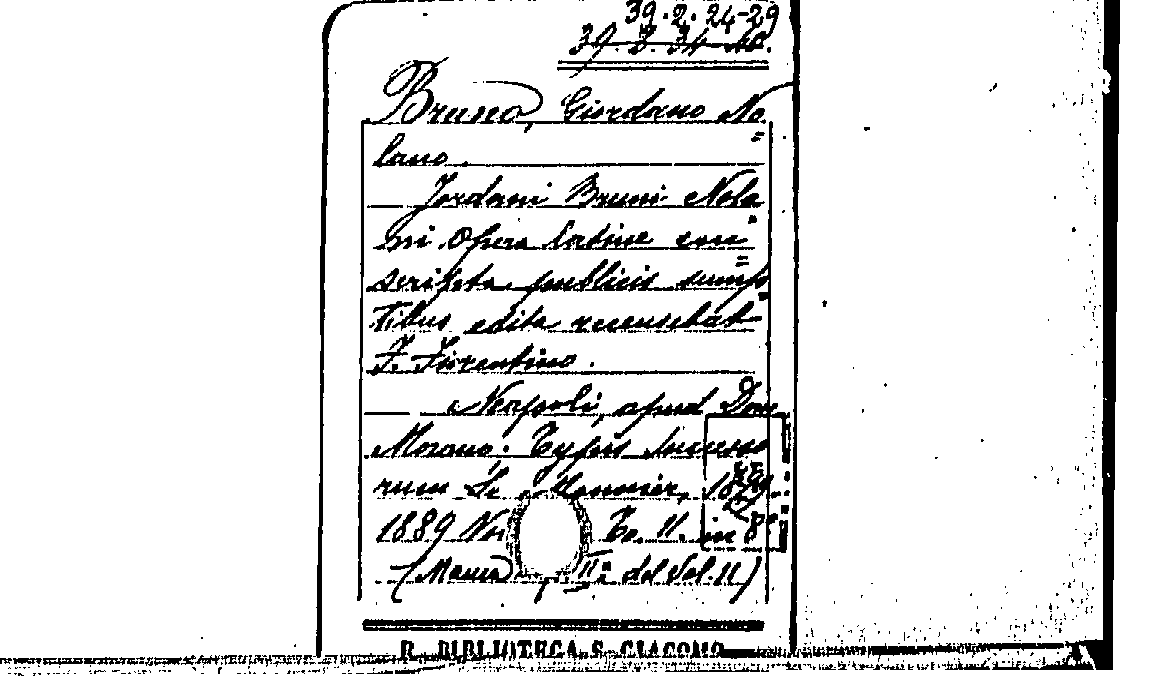 39.2.24-29
39.3.34-40.
Bruno, Giordano No=
lano.
Jordani Bruni Nola
ni Opera latine con=
scripta publicis sump
tibus edita recensebat
F. Fiorentino.
Neapoli, apud Dom
Morano; Typis Successo
rum Le Monnier, 1879-
1889 Vol To. 11. in 8°
(Manca II° del Vol. II)
R. BIBLIOTECA S. GIACOMO